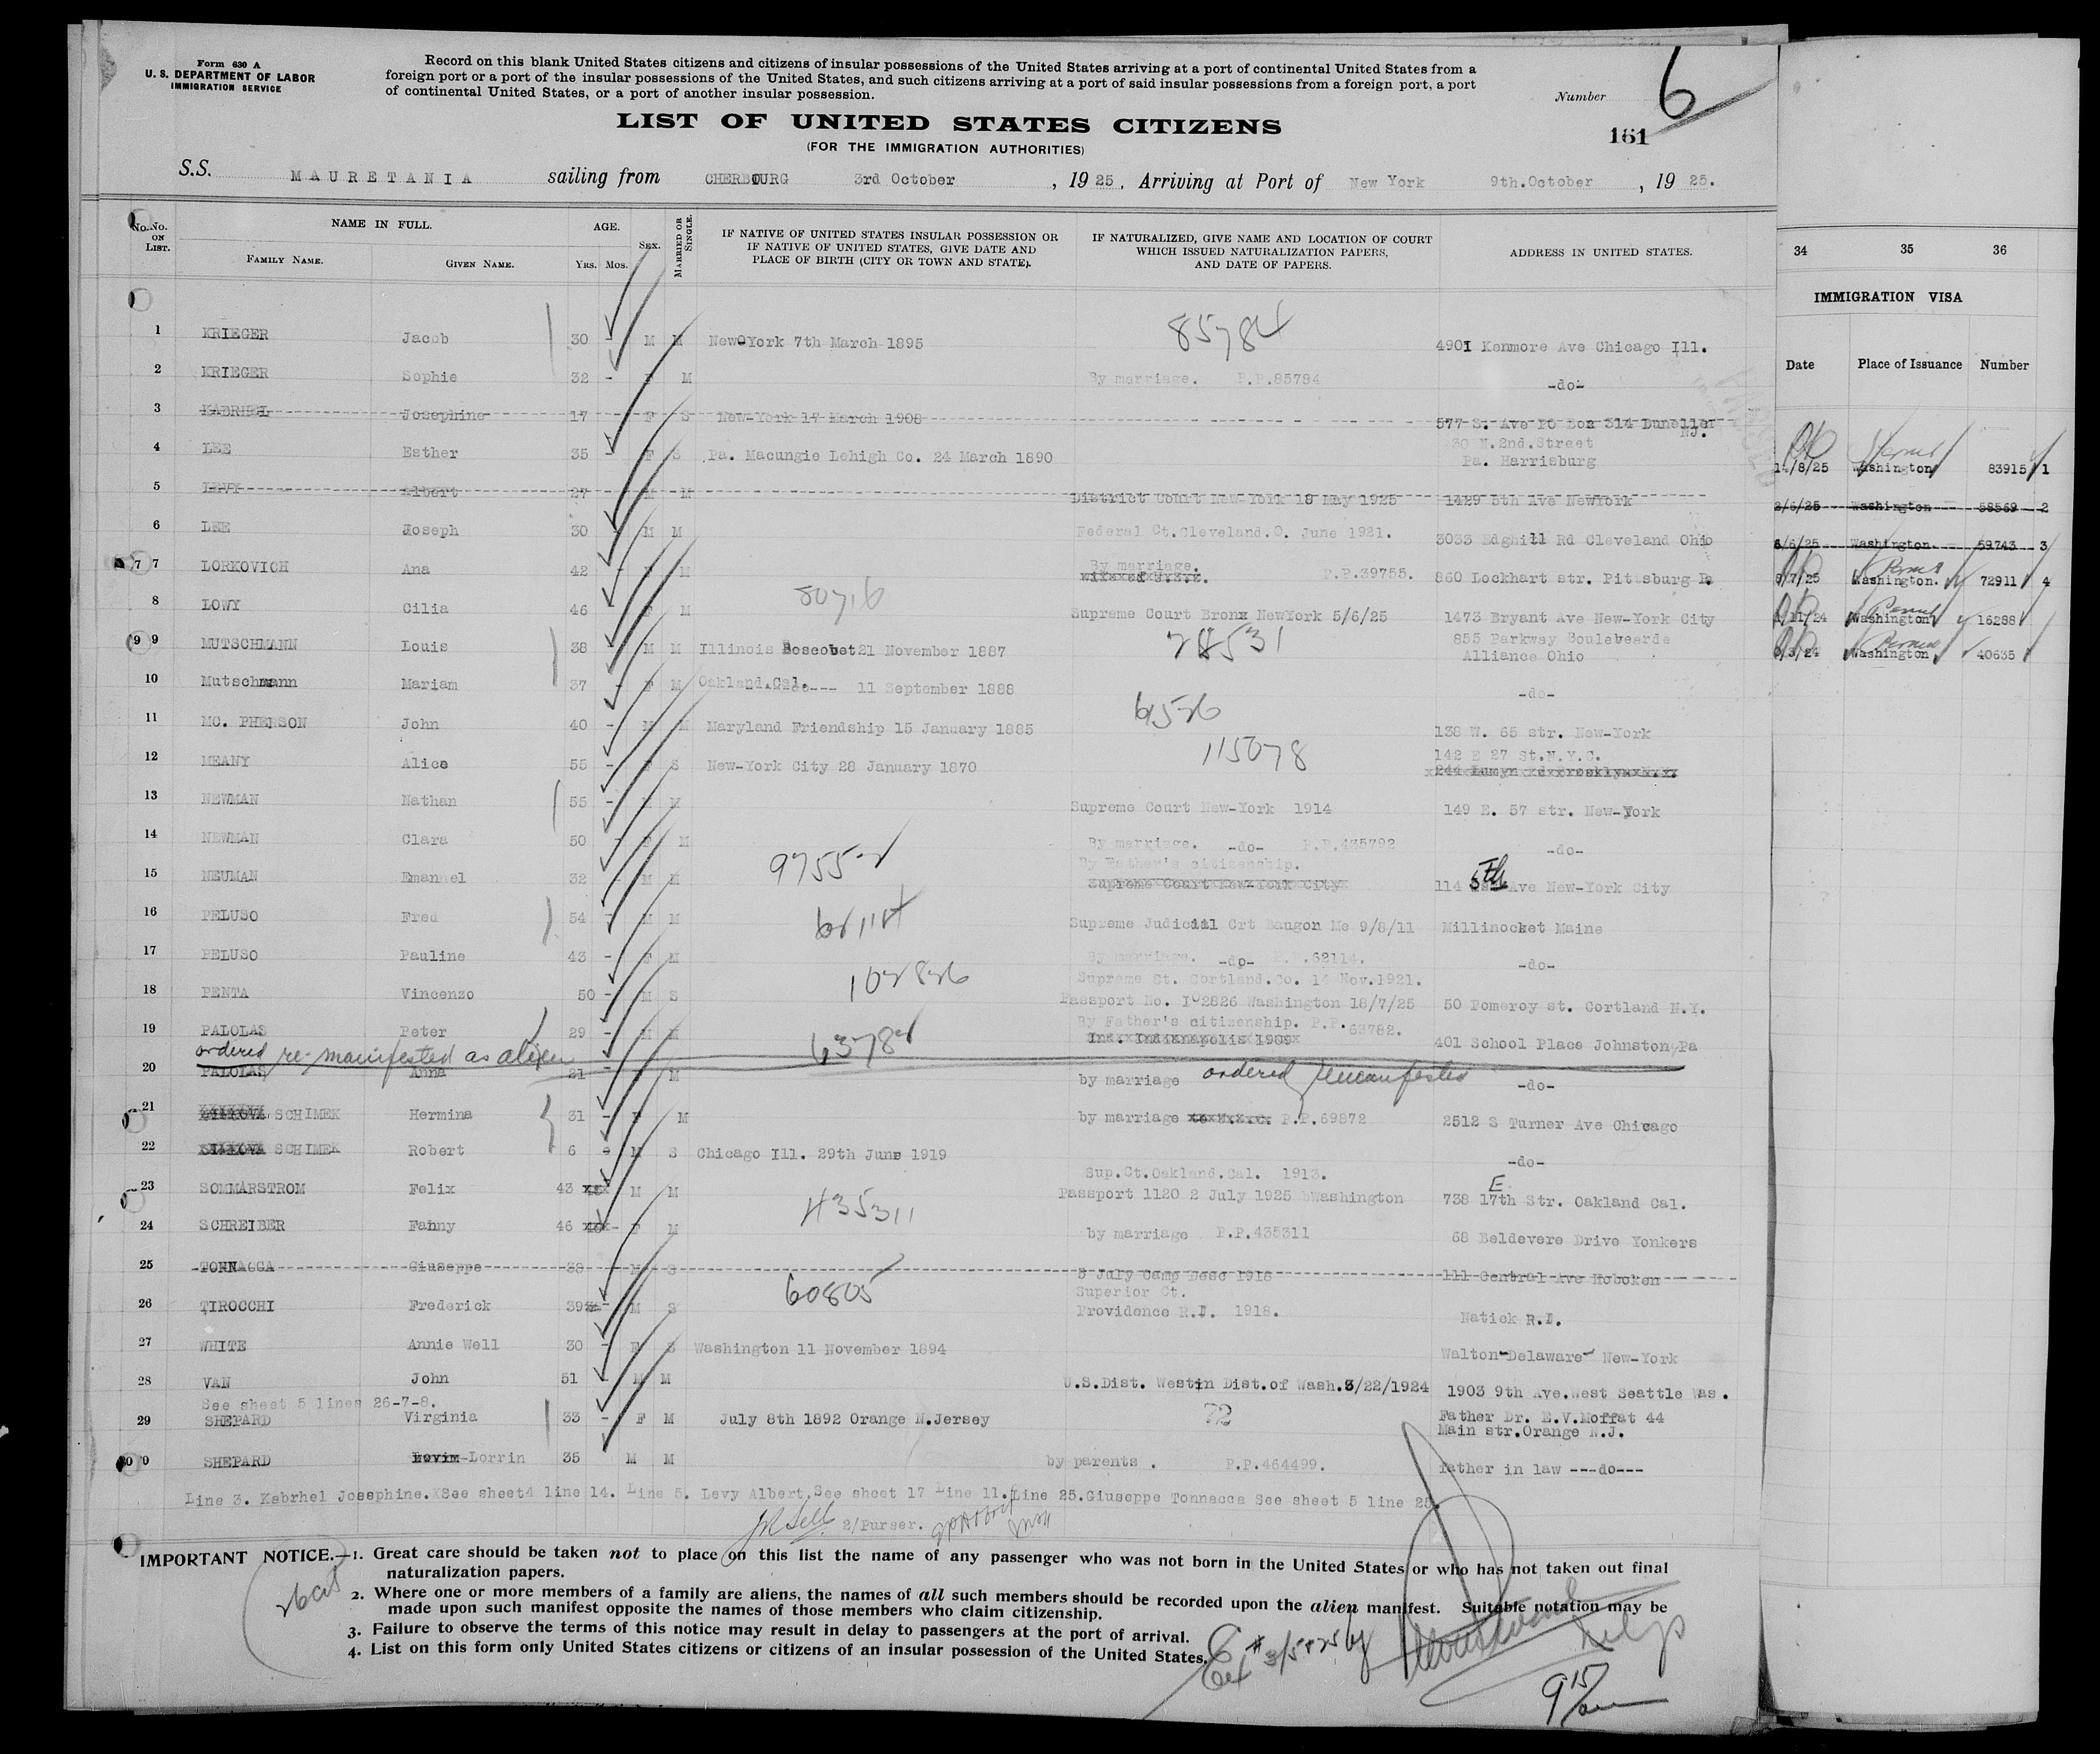 Form 630 A
U. S. DEPARTMENT OF LABOR
IMMIGRATION SERVICE
Record on this blank United States citizens and citizens of insular possessions of the United States arriving at a port of continental United States from a
foreign port or a port of the insular possessions of the United States, and such citizens arriving at a port of said insular possessions from a foreign port, a port
of continental United States, or a port of another insular possession.
Number 6
LIST OF UNITED STATES CITIZENS
161
(FOR THE IMMIGRATION AUTHORITIES)
S.S. MAURETANIA sailing from CHERBOURG 3rd October , 19 25 , Arriving at Port of New York 9th.October , 19 25.
No. No. ON LIST. NAME IN FULL. AGE. SEX. MARRIED OR SINGLE. IF NATIVE OF UNITED STATES INSULAR POSSESSION OR IF NATIVE OF UNITED STATES, GIVE DATE AND PLACE OF BIRTH (CITY OR TOWN AND STATE). IF NATURALIZED, GIVE NAME AND LOCATION OF COURT WHICH ISSUED NATURALIZATION PAPERS, AND DATE OF PAPERS. ADDRESS IN UNITED STATES.
FAMILY NAME. GIVEN NAME. YRS. MOS.
1 KRIEGER Jacob 30 - M M New York 7th March 1895 85784 4901 Kenmore Ave Chicago Ill.
2 KRIEGER Sophie 32 - F M By marriage. P.P.85784 -do-
3 KABRHEL Josephine 17 F S New-York 17 March 1908 577 S. Ave PO Box 314 Duneller NJ.
4 LEE Esther 35 - F S Pa. Macungie Lehigh Co. 24 March 1890 30 N.2nd.Street
Pa. Harrisburg
5 LEVY Albert 27 M M District Court New-York 18 May 1925 1429 5th Ave NewYork
6 LEE Joseph 30 M M Federal Ct.Cleveland.O. June 1921. 3033 Edghill Rd Cleveland Ohio
7 7 LORKOVICH Ana 42 - F M By marriage. P.P.39755. 860 Lockhart str. Pittsburg P.
8 LOWY Cilia 46 - F M 80716 Supreme Court Bronx NewYork 5/6/25 1473 Bryant Ave New-York City
9 9 MUTSCHMANN Louis 38 - M M Illinois Boscobet 21 November 1887 28531 855 Parkway Boulebearde
Alliance Ohio
10 Mutschmann Mariam 37 - F M Oakland.Cal. --- 11 September 1888 -do-
11 MC. PHERSON John 40 - M M Maryland Friendship 15 January 1885 6526 138 W. 65 str. New-York
12 MEANY Alice 55 - F S New-York City 28 January 1870 115078 142 E 27 St.N.Y.C.
13 NEWMAN Nathan 55 - M M Supreme Court New-York 1914 149 E. 57 str. New-York
14 NEWMAN Clara 50 - F M By marriage. -do- P.P.435792 -do-
By Father's citizenship.
15 NEUMAN Emanuel 32 M M 97552 Supreme Court New-York City 114 5th Ave New-York City
16 PELUSO Fred 54 - M M 62114 Supreme Judicial Crt Bangon Me 9/8/11 Millinocket Maine
17 PELUSO Pauline 43 - F M By marriage. -do- P.P.62114. -do-
Supreme St. Cortland.Co. 14 Nov.1921.
18 PENTA Vincenzo 50 - M S 102826 Passport No. 102826 Washington 18/7/25 50 Pomeroy st. Cortland N.Y.
19 PALOLAS Peter 29 - M M 63782 By Father's citizenship. P.P.63782.
Ind. Indianapolis 1909 401 School Place Johnston Pa
ordered re-manifested as alien
20 PALOLAS Anna 21 F M by marriage ordered remanifested -do-
21 SCHIMEK Hermina 31 - F M by marriage P.P.69872 2512 S Turner Ave Chicago
22 SCHIMEK Robert 6 - M S Chicago Ill. 29th June 1919 -do-
Sup.Ct.Oakland.Cal. 1913.
23 SOMMARSTROM Felix 43 M M Passport 1120 2 July 1925 Washington 738 E 17th Str. Oakland Cal.
24 SCHREIBER Fanny 46 - F M 435311 by marriage P.P.435311 68 Beldevere Drive Yonkers
25 TONNACCA Giuseppe 38 M S 5 July Camp Desc 1918 111 Central Ave Hoboken
26 TIROCCHI Frederick 39 - M S 60805 Superior Ct.
Providence R.I. 1918. Natick R.I.
27 WHITE Annie Well 30 - F S Washington 11 November 1894 Walton-Delaware- New-York
28 VAN John 51 M M U.S.Dist. Westin Dist.of Wash.3/22/1924 1903 9th Ave.West Seattle Was.
See sheet 5 lines 26-7-8.
29 SHEPARD Virginia 33 - F M July 8th 1892 Orange N.Jersey 72 Father Dr. E.V.Moffat 44
Main str.Orange N.J.
30 SHEPARD Lorrin 35 M M by parents . P.P.464499. father in law ---do---
Line 3. Kabrhel Josephine. See sheet 4 line 14. Line 5. Levy Albert.See sheet 17 Line 11. Line 25.Giuseppe Tonnacca See sheet 5 line 25.
2/Purser.
IMPORTANT NOTICE.—1. Great care should be taken not to place on this list the name of any passenger who was not born in the United States or who has not taken out final
naturalization papers.
2. Where one or more members of a family are aliens, the names of all such members should be recorded upon the alien manifest. Suitable notation may be
made upon such manifest opposite the names of those members who claim citizenship.
3. Failure to observe the terms of this notice may result in delay to passengers at the port of arrival.
4. List on this form only United States citizens or citizens of an insular possession of the United States.
9 15/
34 35 36
IMMIGRATION VISA
Date Place of Issuance Number
14/8/25 Washington 83915 1
2/6/25 Washington 58569 2
6/6/25 Washington 59743 3
9/7/25 Washington. 72911 4
1/11/24 Washington 16288
3/3/24 Washington 40635